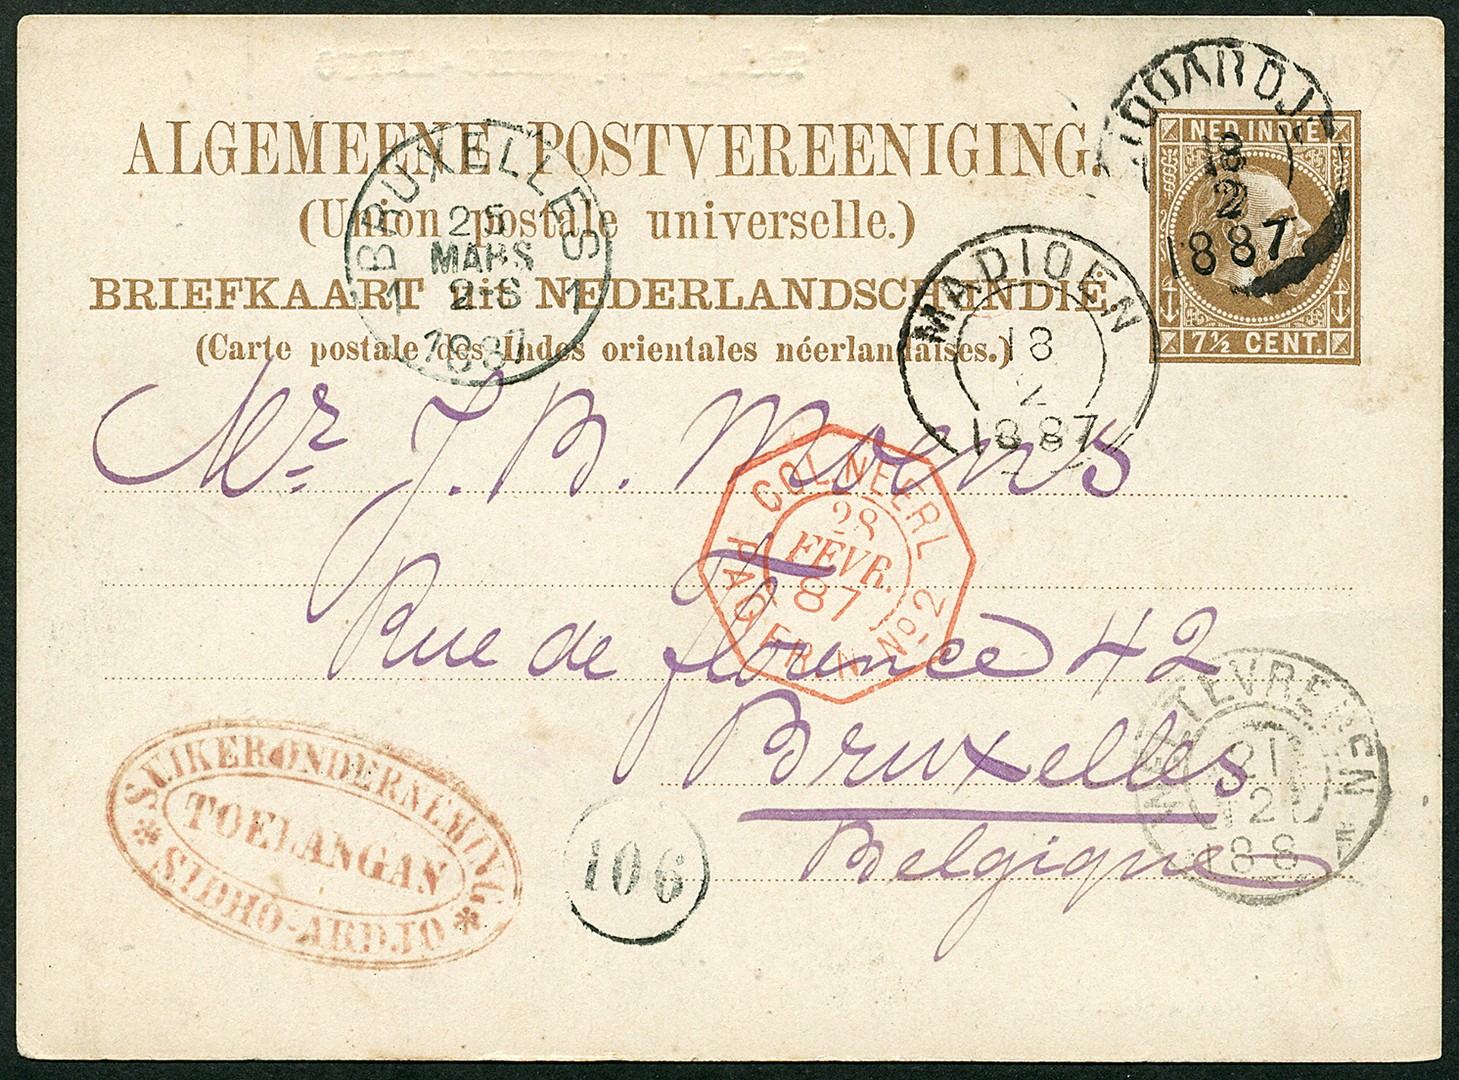 ALGEMEENE POSTVEREENIGING.
(Union postale universelle.)
BRIEFKAART uit NEDERLANDSCH INDIË.
(Carte postale des Indes orientales néerlandaises.)
NED. INDIE
7½ CENT.
1887
BRUXELLES
25
MARS
1887
1 1
MADIOEN
18
1887
Mr. J. B. Moens
COL. NEERL
28
FEVR.
87
PAQ. FR. N No 2
Rue de florence 42
Bruxelles
Belgique
WELTEVREDEN
21
188
SUIKERONDERNEMING
TOELANGAN
* SIDHO-ARDJO *
106